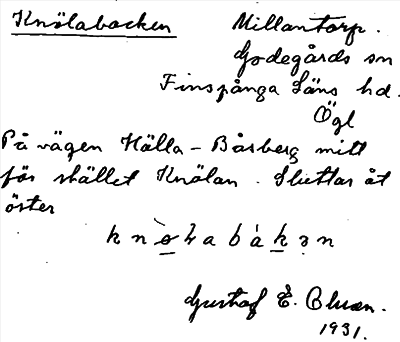 Knölabacken
Millantorp.
Godegårds sn
Finspånga Läns hd.
Ögl
På vägen Hälla - Båsberg mitt
för stället Knölan. Sluttar åt
öster
Gustaf E.
1931.